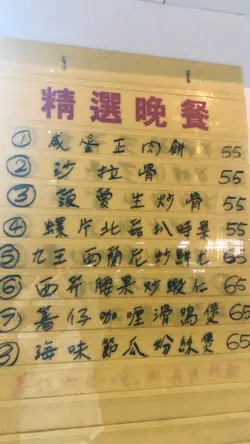 精選晚餐
① 咸蛋正肉餅 55
② 沙拉骨 55
③ 菠蘿生炒骨 55
④ 螺片北菇扒時菜 55
⑤ 九王西蘭尼炒鮮尤 65
⑥ 西芹腰果炒蝦仁 65
⑦ 薯仔咖喱滑雞煲 65
⑧ 海味節瓜粉絲煲 65